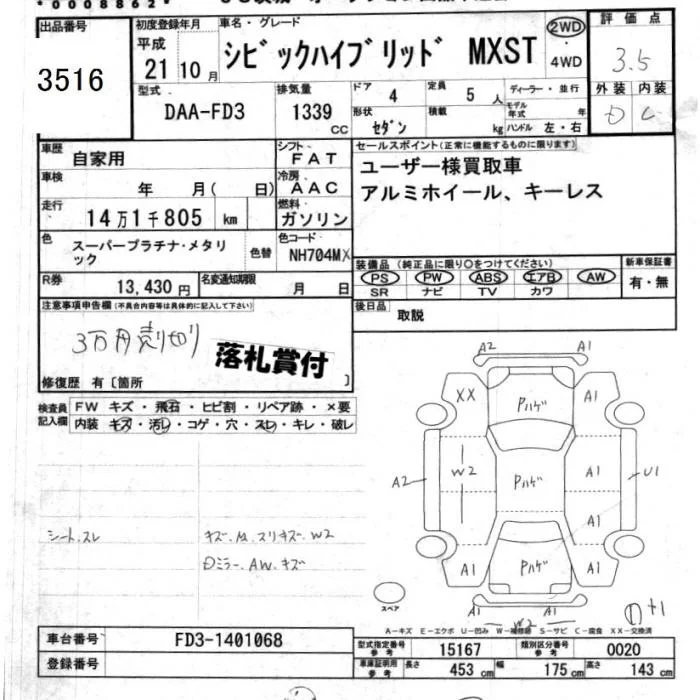 *00088862*
出品番号
3516
初度登録年月
平成
21 10月
車名・グレード
シビックハイブリッド MXST
2WD
・
4WD
評価点
3.5
外装 内装
D C
型式
DAA-FD3
排気量
1339 CC
ドア 4
定員 5 人
形状 セダン
積載 kg
ディーラー・並行
モデル年式 年
ハンドル 左・右
車歴 自家用
シフト FAT
車検 年 月( 日)
冷房 AAC
走行 14万1千805 km
燃料 ガソリン
色 スーパープラチナ・メタリック
色替
色コード NH704MX
R券 13,430 円
名変通知期限 月 日
セールスポイント(正常に機能するものに限ります)
ユーザー様買取車
アルミホイール、キーレス
装備品(純正品に限り○をつけてください)
PS PW ABS エアB AW
SR ナビ TV カワ
新車保証書
有・無
後日品 取説
注意事項申告欄(不具合内容等は具体的に記入して下さい)
3万円売り切り
落札賞付
修復歴 有〔箇所 〕
検査員記入欄
FW キズ・飛石・ヒビ割・リペア跡・×要
内装 キズ・汚レ・コゲ・穴・スレ・キレ・破レ
シート、スレ
キズ・A、スリキズ、W2
Dミラー、AW、キズ
A2 A1
XX Pハゲ A1
A2 W2 Pハゲ A1 U1
A1
A1 Pハゲ A1
A1 W2 A1
スペア
A-キズ E-エクボ U-凹み W-補修跡 S-サビ C-腐食 XX-交換済
車台番号 FD3-1401068
登録番号
型式指定番号 参考 15167
類別区分番号 参考 0020
車庫証明用 参考 長さ 453 cm 幅 175 cm 高さ 143 cm